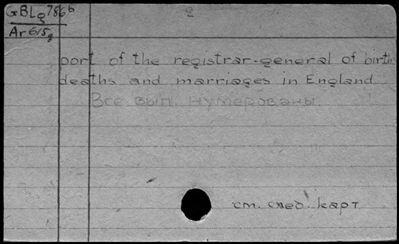 GBLq 786 6
2
Ar 615g
port of the registrar-general of birth
deaths and marriages in England
Все вып. нумерованы
см. след. карт